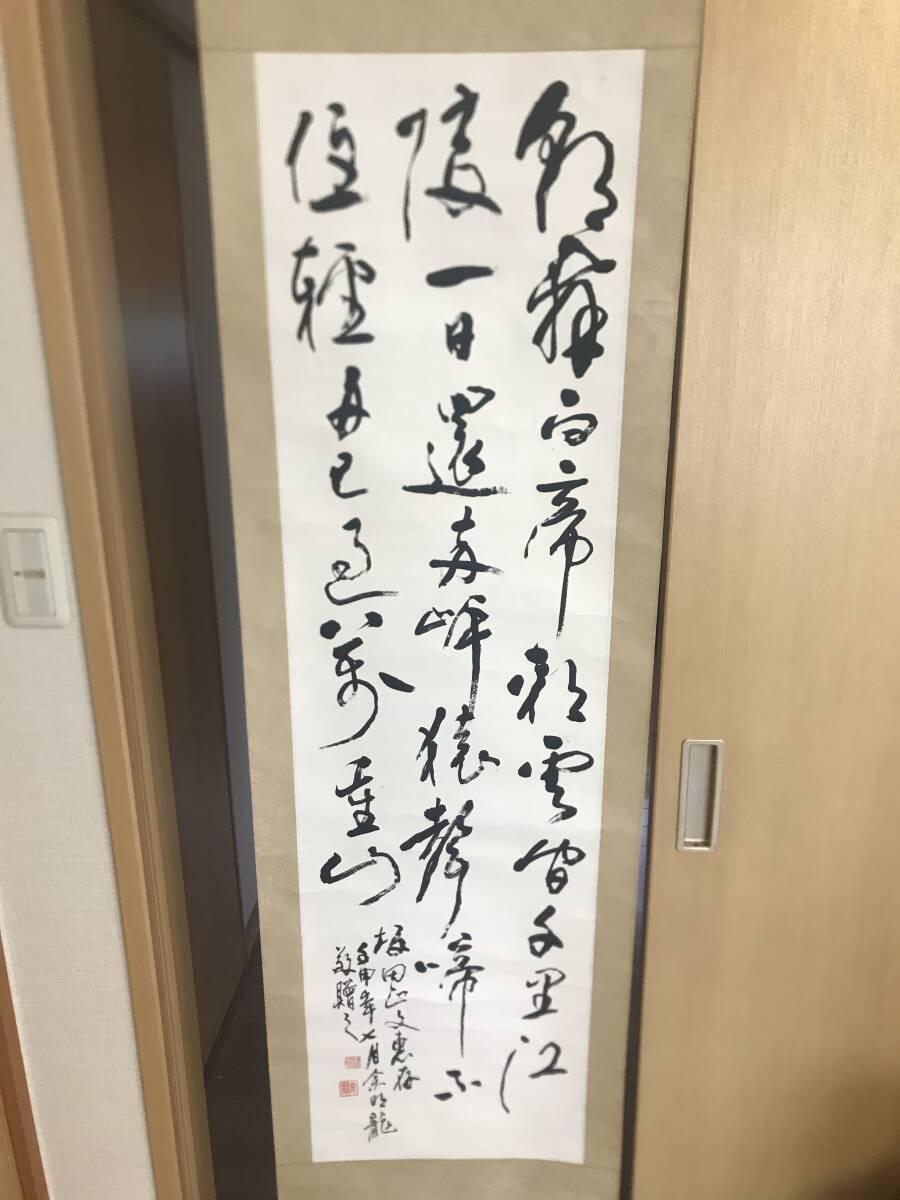 朝辭白帝彩雲間千里江
陵一日還兩岸猿聲啼不
住輕舟已過萬重山
坂田正文惠存
壬申年七月余明龍
敬贈之